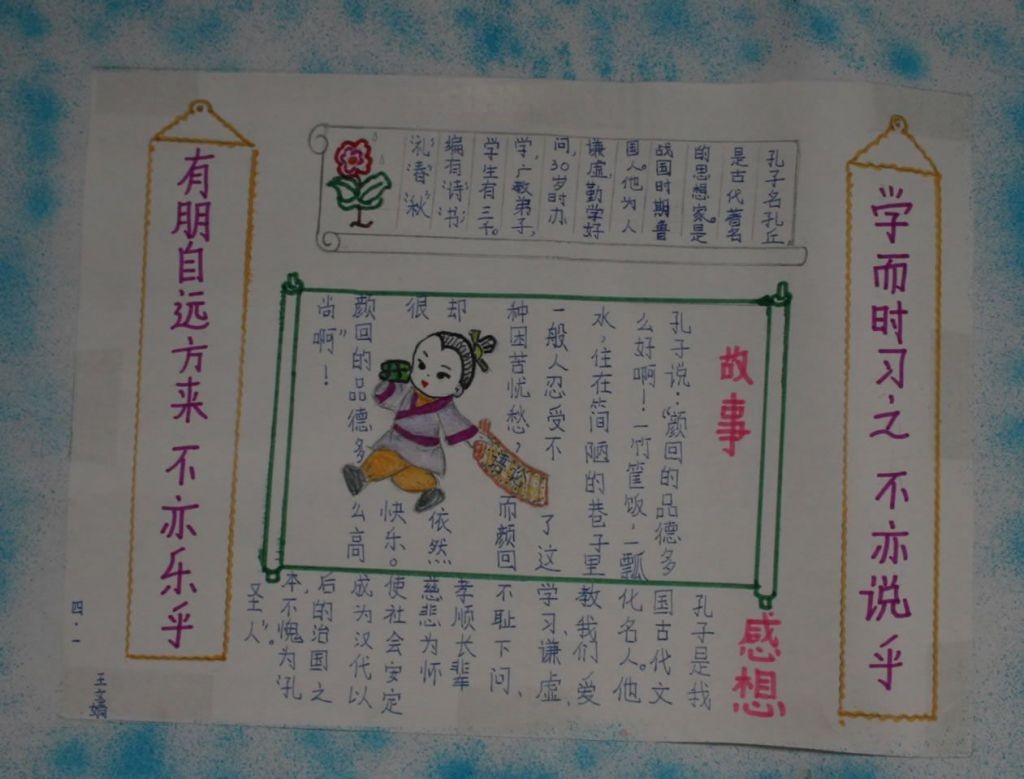 学而时习之 不亦说乎
孔子名孔丘
是古代著名
的思想家。是
战国时期鲁
国人。他为人
谦虚,勤学好
问,30岁时办
学,广教弟子,
学生有三千。
编有《诗》《书》
《礼》《春秋》
故事
孔子说:“颜回的品德多
么好啊!一竹筐饭,一瓢
水,住在简陋的巷子里
一般人忍受不了这
种困苦忧愁,而颜回
却依然
很快乐。
颜回的品德多么高
尚啊”!
感想
孔子是我
国古代文
化名人。他
教我们爱
学习、谦虚、
不耻下问、
孝顺长辈
慈悲为怀
使社会安定
成为汉代以
后的治国之
本,不愧为“孔
圣人”。
有朋自远方来 不亦乐乎
四·一